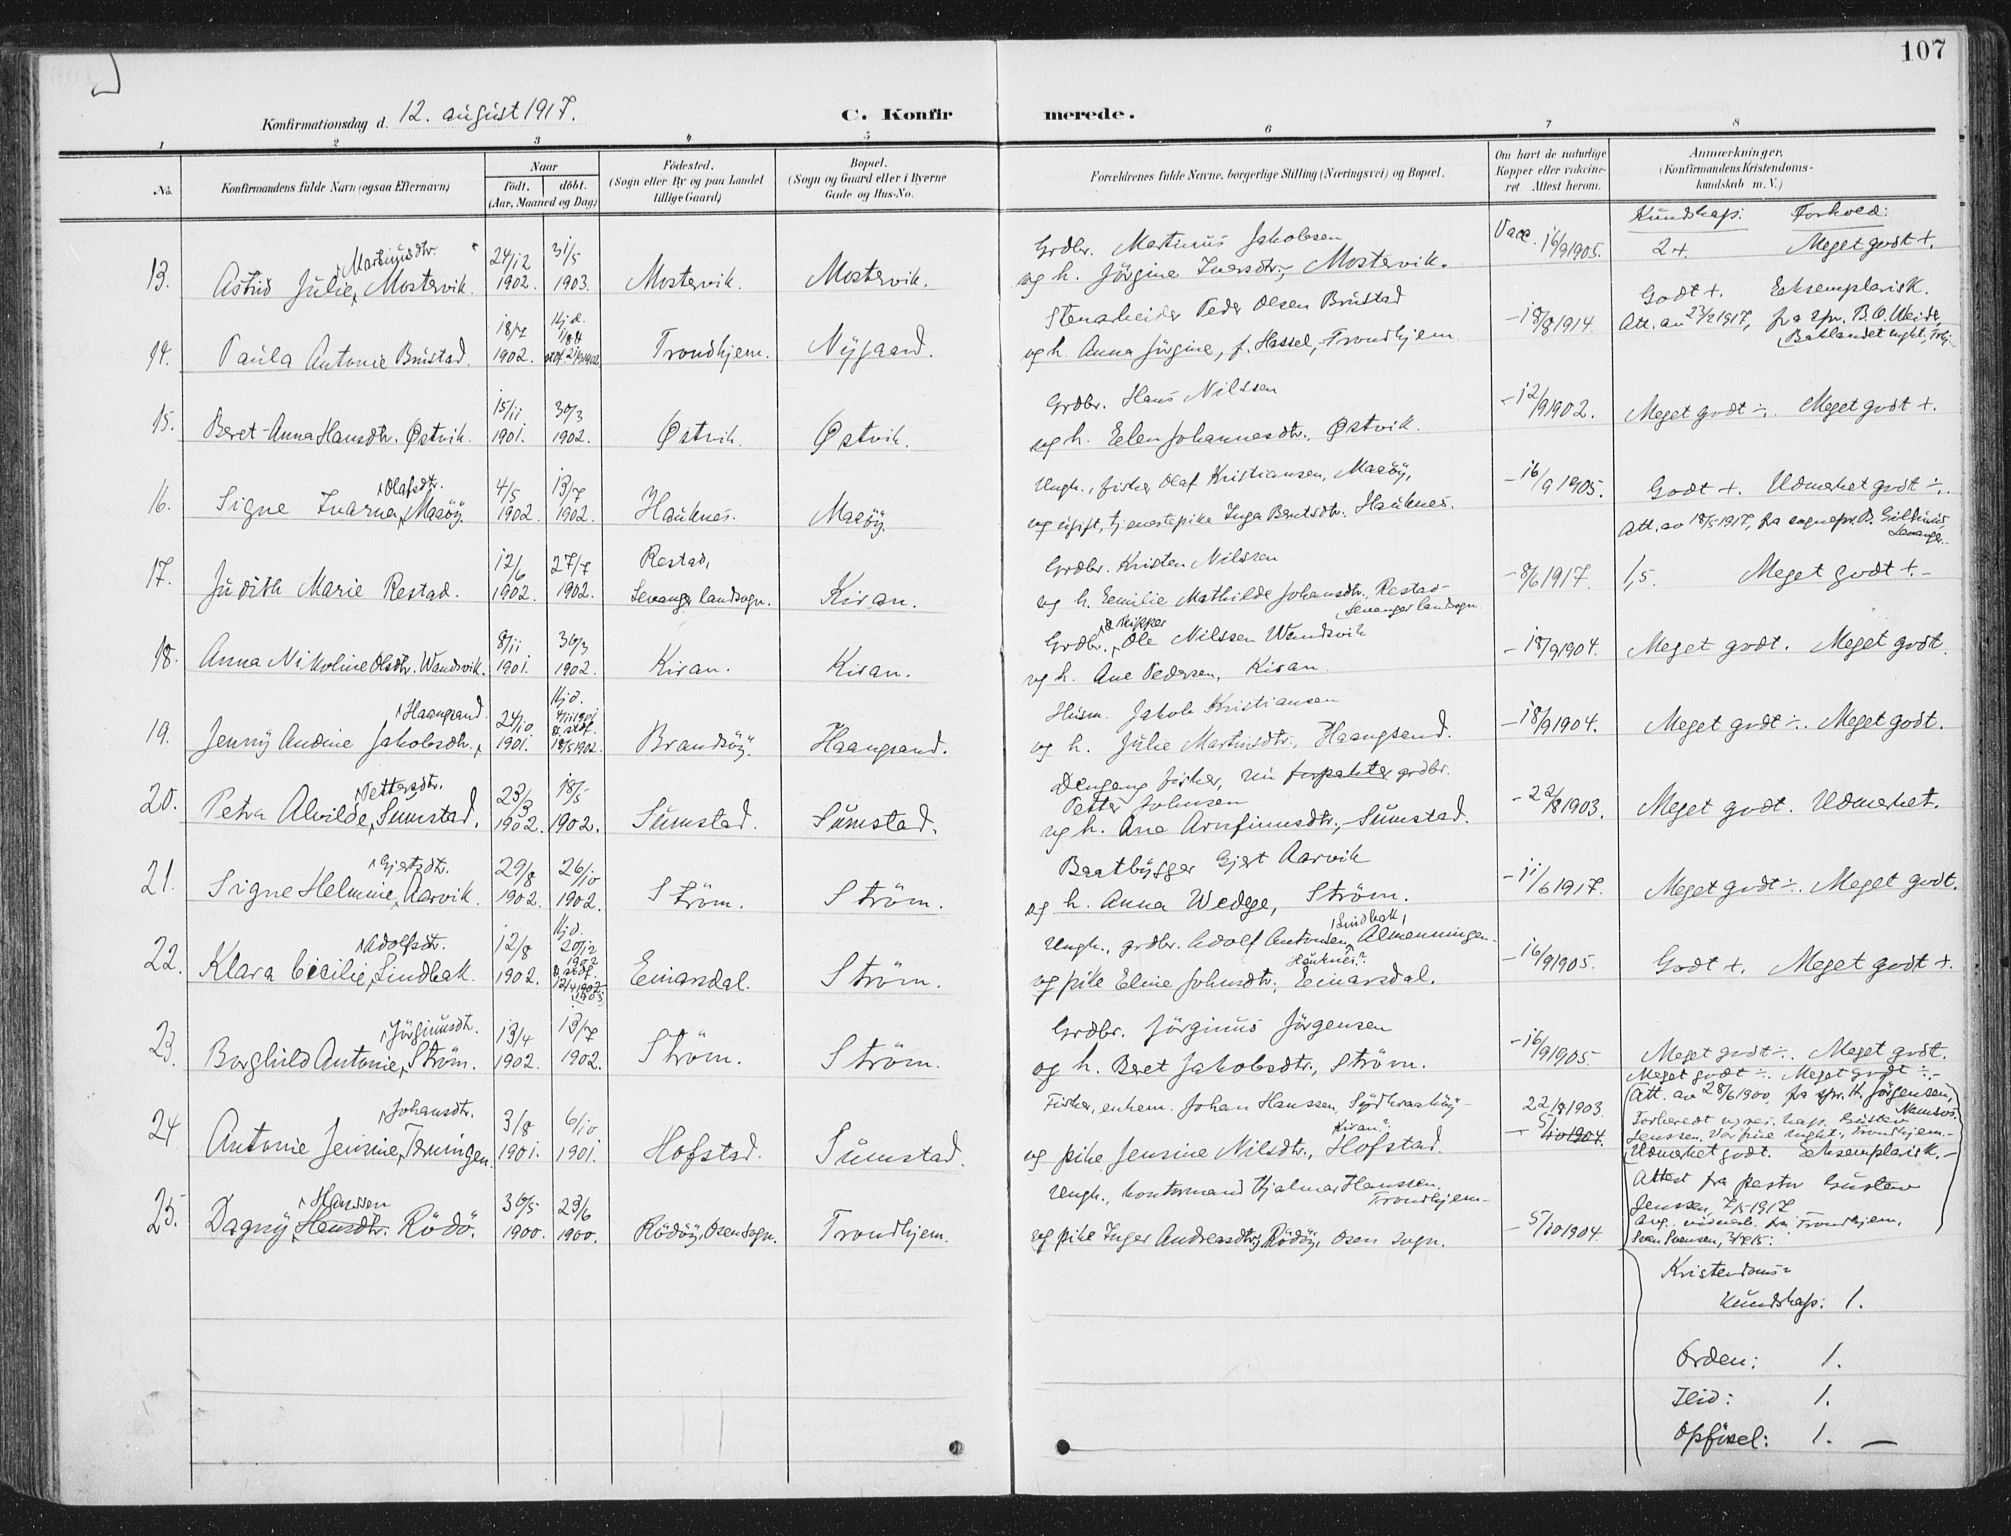 107
Konfirmationsdag d. 12. august 1917.
C. Konfirmerede.
1 2 3 4 5 6 7 8
No.
Konfirmandens fulde Navn (ogsaa Efternavn)
Naar
født. døbt.
(Aar, Maaned og Dag)
Fødested.
(Sogn eller By og paa Landet
tillige Gaard)
Bopæl.
(Sogn og Gaard eller i Byerne
Gade og Hus-No.
Forældrenes fulde Navne, borgerlige Stilling (Næringsvei) og Bopæl.
Om havt de naturlige
Kopper eller vakcine-
ret. Attest herom.
Anmærkninger.
(Konfirmandens Kristendoms-
kundskab m. V.)
Kundskap: Forhold:
13. Astrid Julie, Martinusdtr. Mostervik. 24/12 1902. 31/5 1903. Mostervik. Mostervik.
Grdbr. Martinus Jakobsen
og h. Jörgine Iversdtr., Mostervik.
Vacc. 16/9 1905. 2+. Meget godt +.
14. Paula Antonie Brustad. 18/7 1902. Trondhjem. Nygaard.
Stenarbeider Peder Olsen Brustad
og h. Anna Jörgine, f. Hassel, Trondhjem
- 18/8 1914. Godt +. Eksemplarisk.
Att. av 23/2 1917, fra spr. B. O. Weider,
Baklandet mght., Trhj.
15. Beret-Anna Hansdtr. Østvik. 15/11 1901. 30/3 1902. Østvik. Østvik.
Grdbr. Hans Nilssen
og h. Elen Johannesdtr., Østvik.
- 12/9 1902. Meget godt ÷. Meget godt +.
16. Signe Ivarna, Olafsdtr. Maöy. 4/5 1902. 13/7 1902. Hauknes. Maöy.
Ungk., fisker Olaf Kristiansen, Maöy,
og ugift, tjenestepike Inga Berntsdtr. Hauknes.
- 16/9 1905. Godt +. Udmerket godt ÷.
Att. av 18/5 1917, fra sognepr. B.
Levanger
17. Judith Marie Restad. 12/6 1902. 27/7 1902. Restad,
Levanger landsogn. Kiran.
Grdbr. Kristen Nilssen
og h. Emilie Mathilde Johansdtr. Restad
Levanger landsogn.
- 8/6 1917. 1,5. Meget godt +.
18. Anna Nikoline Olsdtr. Wandsvik. 8/11 1901. 30/3 1902. Kiran. Kiran.
Grdbr. & skipper Ole Nilssen Wandsvik
og h. Ane Pedersen, Kiran.
- 18/9 1904. Meget godt. Meget godt.
19. Jenny Andine Jakobsdtr., Haangsand. 24/10 1901. Hjd. 4/11 1901 & stdf. 18/5 1902. Brandsöy. Haangsand.
Husm. Jakob Kristiansen
og h. Julie Martinsdtr., Haangsand.
- 18/9 1904. Meget godt ÷. Meget godt.
20. Petra Alvilde, Pettersdtr. Sumstad. 23/3 1902. 18/5 1902. Sumstad. Sumstad.
Dengang fisker, nu forpakter grdbr.
Petter Johnsen
og h. Ane Arnfinnsdtr., Sumstad.
- 22/8 1903. Meget godt. Udmerket.
21. Signe Helmine, Gjertsdtr. Aarvik. 29/8 1902. 26/10 1902. Ström. Ström.
Baatbygger Gjert Aarvik
og h. Anna Wedege, Ström.
- 11/6 1917. Meget godt ÷. Meget godt.
22. Klara Cicilie, Adolfsdtr. Lindbak. 12/8 1902. Hjd. 20/12 1902 & stdf. 12/4 1903 Einarsdal. Ström.
Ungk., grdbr. Adolf Antonsen, Lindbak, Almenningen
og pike Eline Johnsdtr., Hauknes? Einarsdal.
- 16/9 1905. Godt +. Meget godt +.
23. Borghild Antonie, Jörginusdt. Ström. 13/4 1902. 13/7 1902. Ström. Ström.
Grdbr. Jörginus Jörgensen
og h. Beret Jakobsdtr., Ström.
- 16/9 1905. Meget godt ÷. Meget godt.
24. Antonie Jensine, Johansdtr. Terningen. 3/8 1901. 6/10 1901. Hofstad. Sumstad.
Fisker, enkem. Johan Hanssen, Sydkraaköy
og pike Jensine Nilsdtr., Kiran? Hofstad.
22/8 1903. - 5/10 1904.
Meget godt ÷. Meget godt ÷.
Att. av 28/6 1900, fra spr. H. Jörgensen,
Namsos.
25. Dagny, Hanssen Hansdtr. Rödö. 30/5 1900. 23/6 1900. Rödöy, Osen sogn. Trondhjem.
Ungk., kontormand Hjalmar Hanssen,
Trondhjem
og pike Inger Andreasdtr., Rödöy, Osen sogn.
- 5/10 1904.
Forberedt av res. kap. Gustav
Jenssen, Vor frue mght., Trondhjem.
Udmerket godt. Eksemplarisk.
Attest fra pastor Gustav
Jenssen, 7/5 1917
Avg. vidnesb. fra Trondhjem,
Kristendoms-
kundskap: 1.
Orden: 1.
Flid: 1.
Opförsel: 1. —